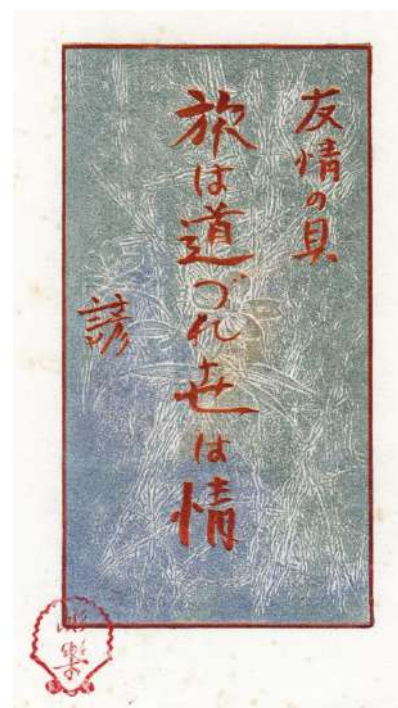 友情の具
旅は道づれ世は情
諺